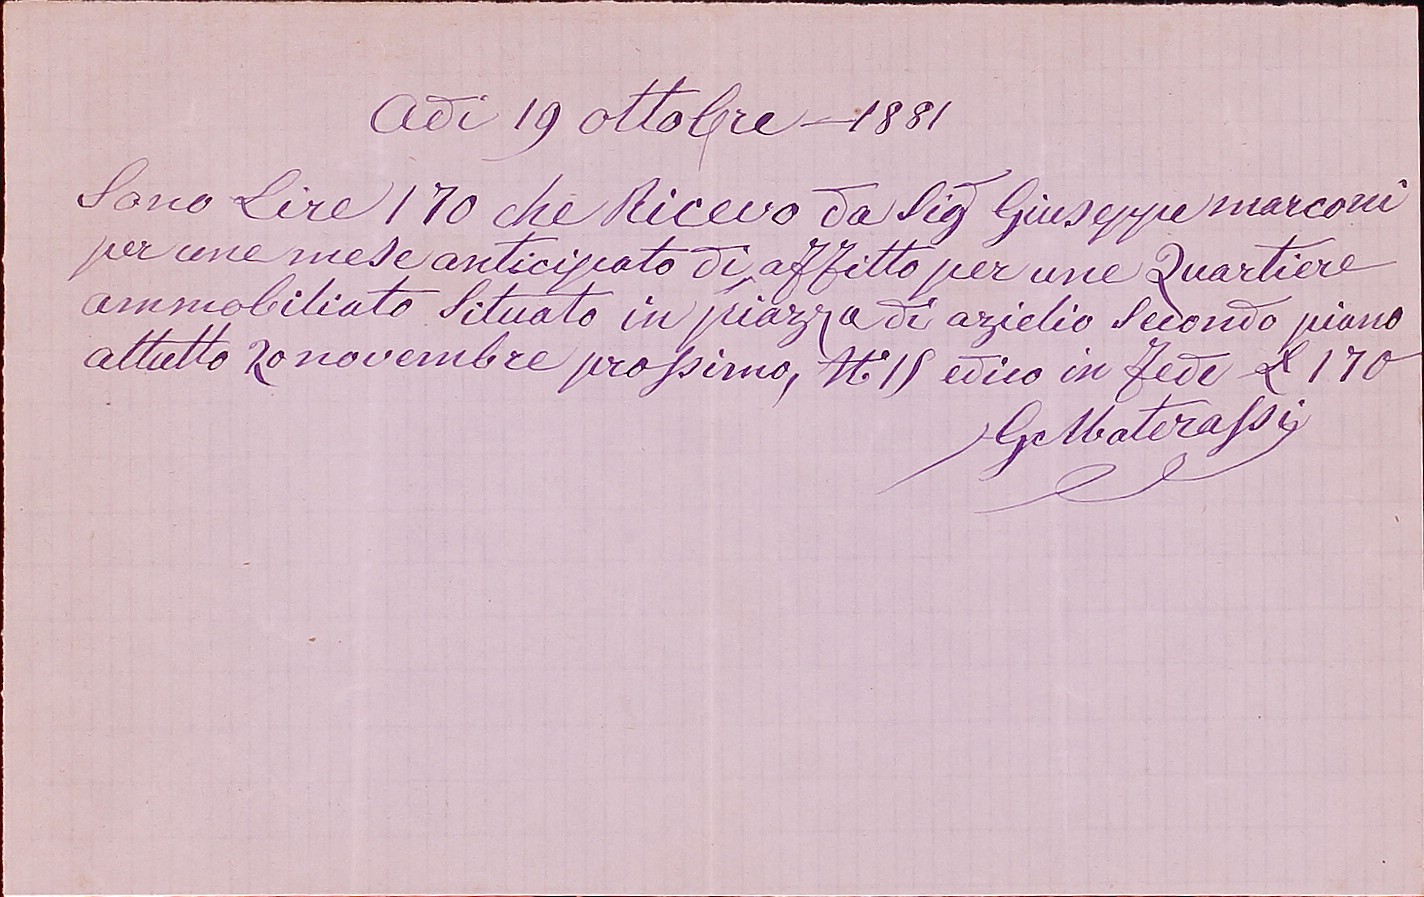 Adi 19 ottobre – 1881
Sono Lire 170 che Ricevo da Sig Giuseppe marconi
per une mese anticipato di affitto per une Quartiere
ammobiliato Situato in piazza di azielio Secondo piano
attutto 20 novembre prossimo, edico in fede L 170
G Materassi